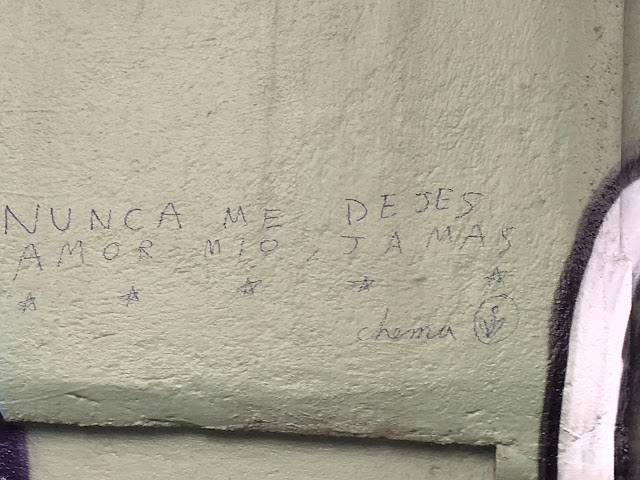 NUNCA ME DEJES
AMOR MIO, JAMAS
chema